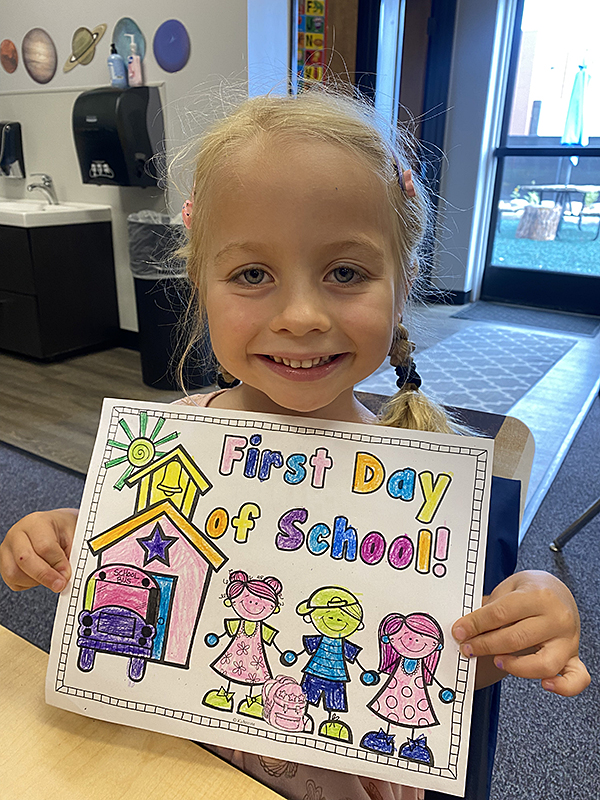 First Day
of School!
SCHOOL
BUS